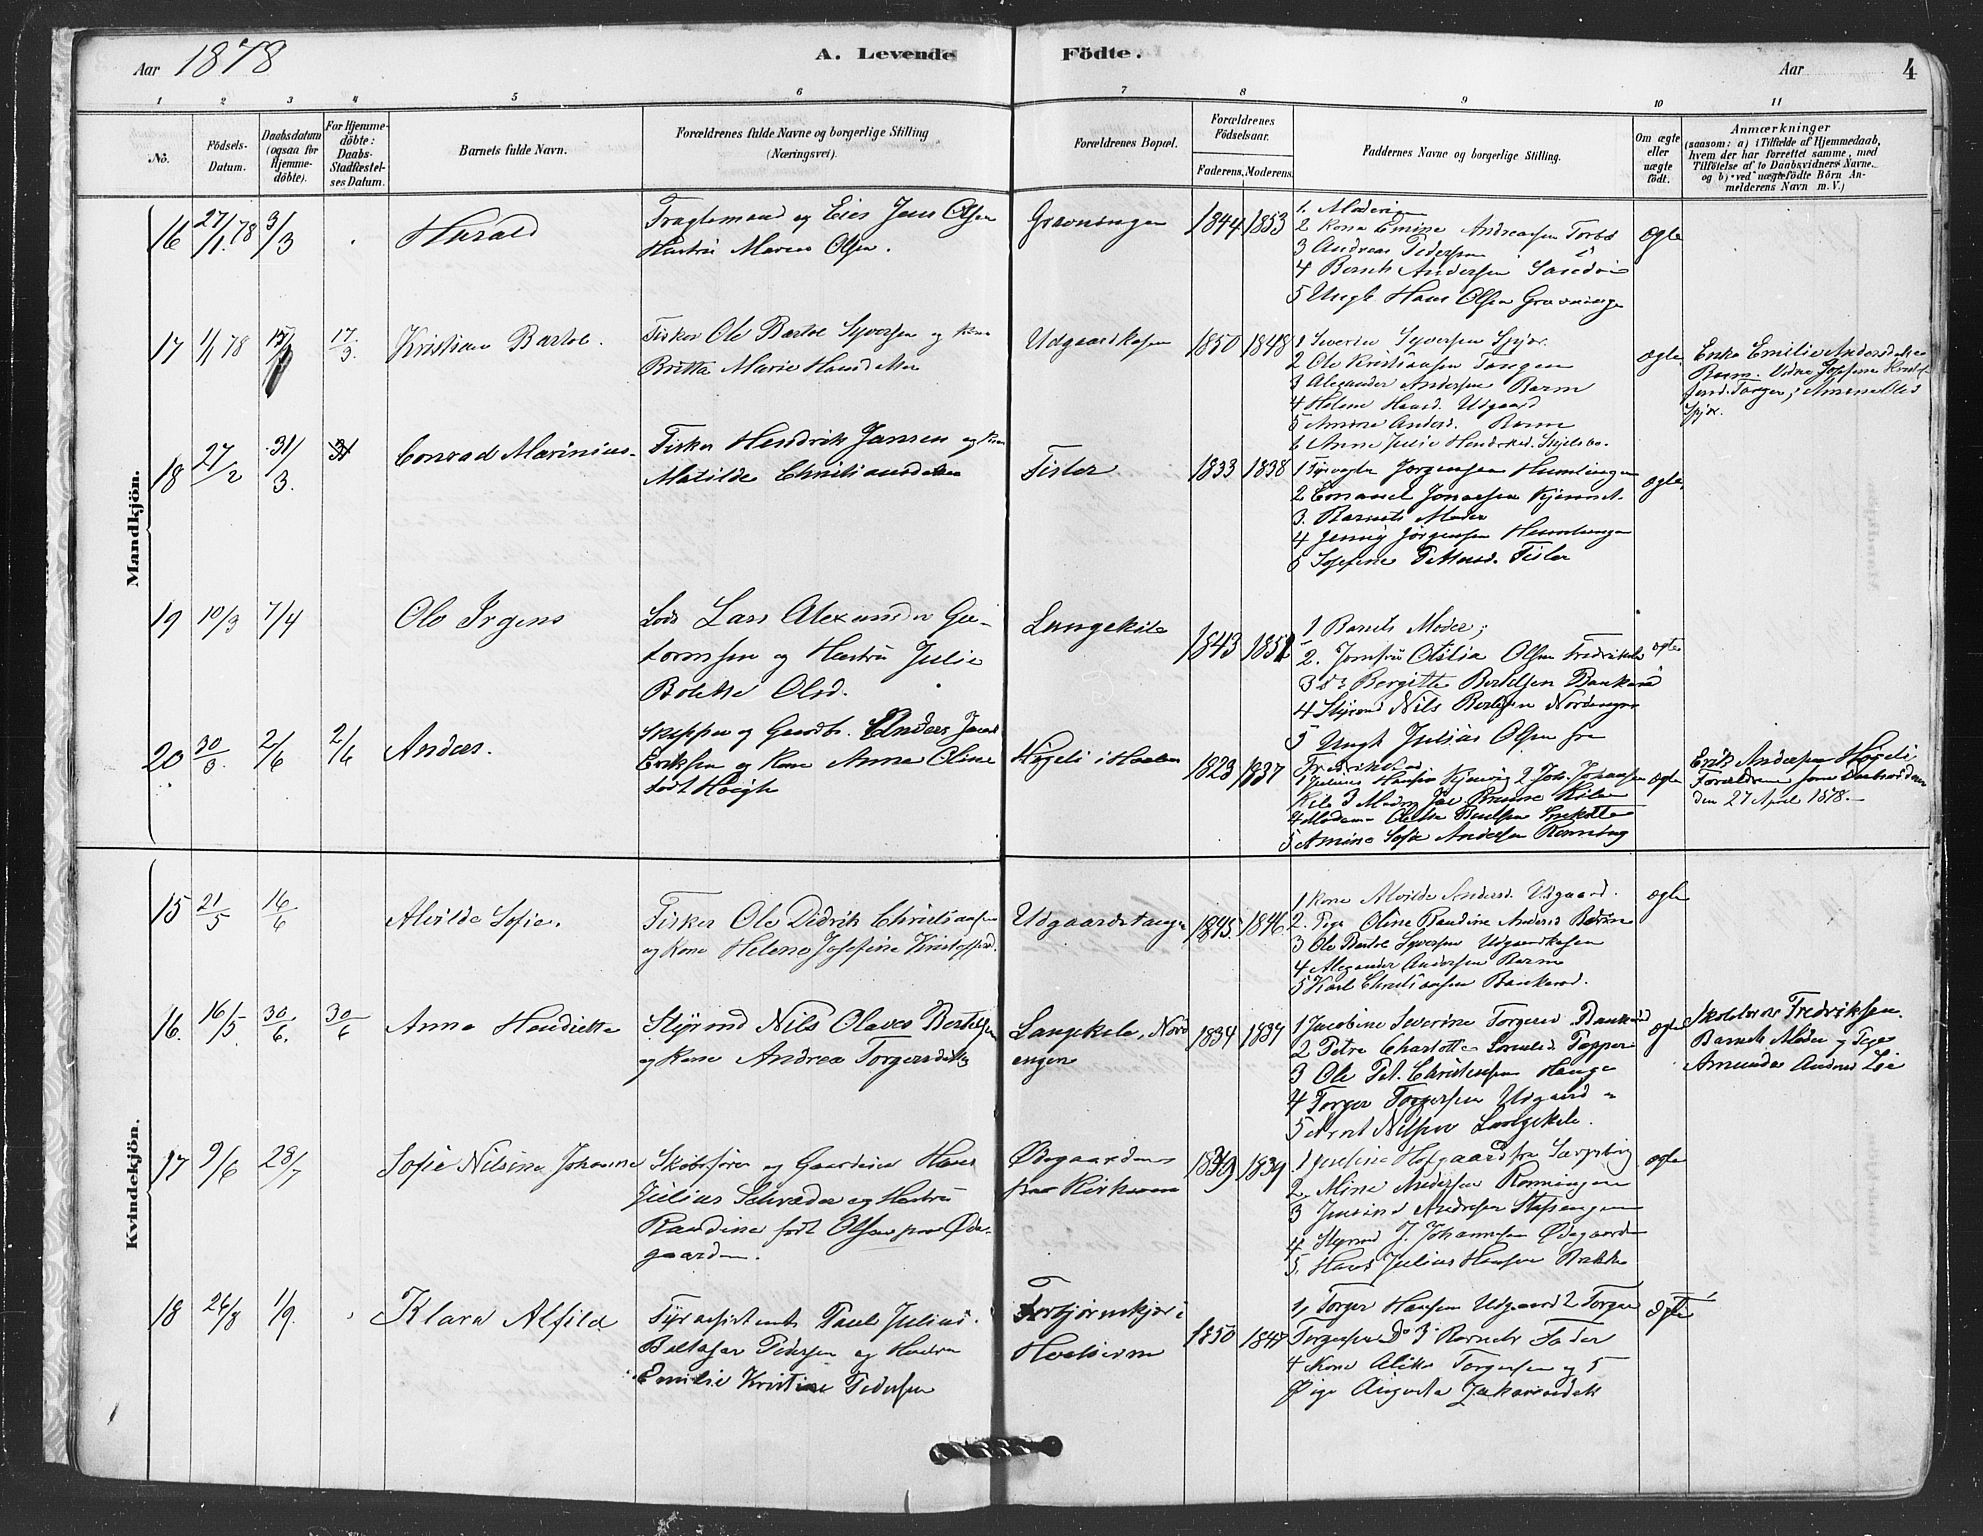 Aar 1878
A. Levende Födte.
Aar
4
1 2 3 4 5 6 7 8 9 10 11
No.
Födsels-Datum.
Daabsdatum (ogsaa for Hjemme-döbte).
For Hjemme-döbte: Daabs-Stadfæstel-ses Datum.
Barnets fulde Navn.
Forældrenes fulde Navne og borgerlige Stilling
(Næringsvei).
Forældrenes Bopæl.
Forældrenes Födselsaar.
Faderens. Moderens.
Faddernes Navne og borgerlige Stilling.
Om ægte eller uægte födt.
Anmærkninger
(saasom: a) i Tilfælde af Hjemmedaab,
hvem der har forrettet samme, med
Tilföielse af to Daabsvidners Navne.
og b) ved uægtefödte Börn An-
melderens Navn m. V.)
Mandkjön.
16 27/1 78 3/3 Harald
Jens Olsen
Hustru Maren Olsen.
Gravningen 1844 1853
1. Moderen
2 Kone Emine Andreassen Torbo
3 Andreas Pedersen
4 Bernts Andersen
5 Ungk Hans Olsen Gravninge
ægte
17 1/1 78 17/3. Kristian Bartol.
Fisker Ole Bartol Syversen og Kone
Britta Marie Hansdatter
Udgaardkasen 1850 1848
1 Severin Syversen Spjær.
2 Ole Kristiansen Tangen
3 Alexander Andersen Barm
4 Helene Hansd. Udgaard
5 Amine Andersd. Barm
6 Anne Julie Hendriksd.
ægte
Enke Emilie Andersdatter
Barm. Vidne Josefine Kristof
Spjær.
18 27/2 31/3. 31 Conrad Marinius.
Fisker Hendrik Jansen og Kone
Matilde Christiansdatter
Tisler 1833 1838
1 Fyrvogter Jørgensen Humlungen
2 Emanuel Jonassen
3. Barnets Moder
4 Jenny Jørgensen Humlungen
5 Josefine Pettersd. Tisler
ægte
19 10/3 7/4 Ole Irgens
Lods Lars Alexander Gu-
tormsen og Hustru Julie
Bolette Olsd.
Langekile 1843 1852
1 Barnets Moder;
2. Jomfru Otilia Olsen Fredrikstad
3 do Bergitte Bertelsen Bankerød
4 Styrmd Nils Bertelsen Nordengen
5 Ungk Julius Olsen fra
Fredrikstad
ægte
20 30/3. 2/6 2/6 Anders.
Skipper og Gaardbr. Anders Jacob
Eriksen og Kone Anna Oline
født Høigh
Høgeli i Hvaler 1823 1837
1 Julius Hansen Kjølvig 2 Joh. Johansen
Kile 3 Madm
4 Madam
5 Amine Sofie Andersen Rønning
ægte
Erik Andersen Høgeli
Forældrene
den 27 April 1878.
Kvindekjön.
15 21/5 16/6 Alvilde Sofie.
Fisker Ole Didrik Christiansen
og Kone Helene Josefine Kristoffersd.
Udgaardstangen 1845 1846
1 Kone Alvilde Andersd. Udgaard.
2. Pige Oline Randine Andersd Barm
3 Ole Bartol Syversen Udgaardkasen
4 Alexander Andersen Barm
5 Karl Christiansen Bankerød.
ægte
16. 16/5 30/6. 30/6 Anna Hendrikke
Styrmd Nils Olaves Bertelsen
og Kone Andrea Torgersdatter
Langekile, Nord
engen 1834 1837
1 Jacobine Severine Torgersd Bankerød
2 Petra Charlotte Lorentsd Papper
3 Ole Pet. Christensen Hauge
4 Torger Torgersen Udgaard
5 Arnt Nilsen Langekile.
ægte
Skolelærer Fredriksen.
Barnets Moder og Pige
Amunda Andersd
17 9/6 28/7 Sofie Nilsine Johanne
Skibsfører og Gaardeier Hans
Julius Schrøder og Hustru
Randine født Olsen paa Øde-
gaarden.
Ødegaarden
paa Kirkøen 1839 1839
1 Josefine Hofgaard fra Sarpsborg
2. Mine Andersen Rønningen
3 Andersen
4 Styrmd J. Johannesen Ødegaarden
5. Hans Julius Hansen Bakke
ægte
18 26/8 1/9. Klara Alfild
Fyrassistent Paul Julius
Baltasar Pedersen og Hustru
Emilie Kristine Pedersen
Torbjørnskjær i
Hvalerne 1850 1847
1, Torger Hansen Udgaard 2 Torger
Torgersen do 3 Barnets Fader
4 Kone Torgersen og 5
Pige Augusta Zakariasdatt
ægte